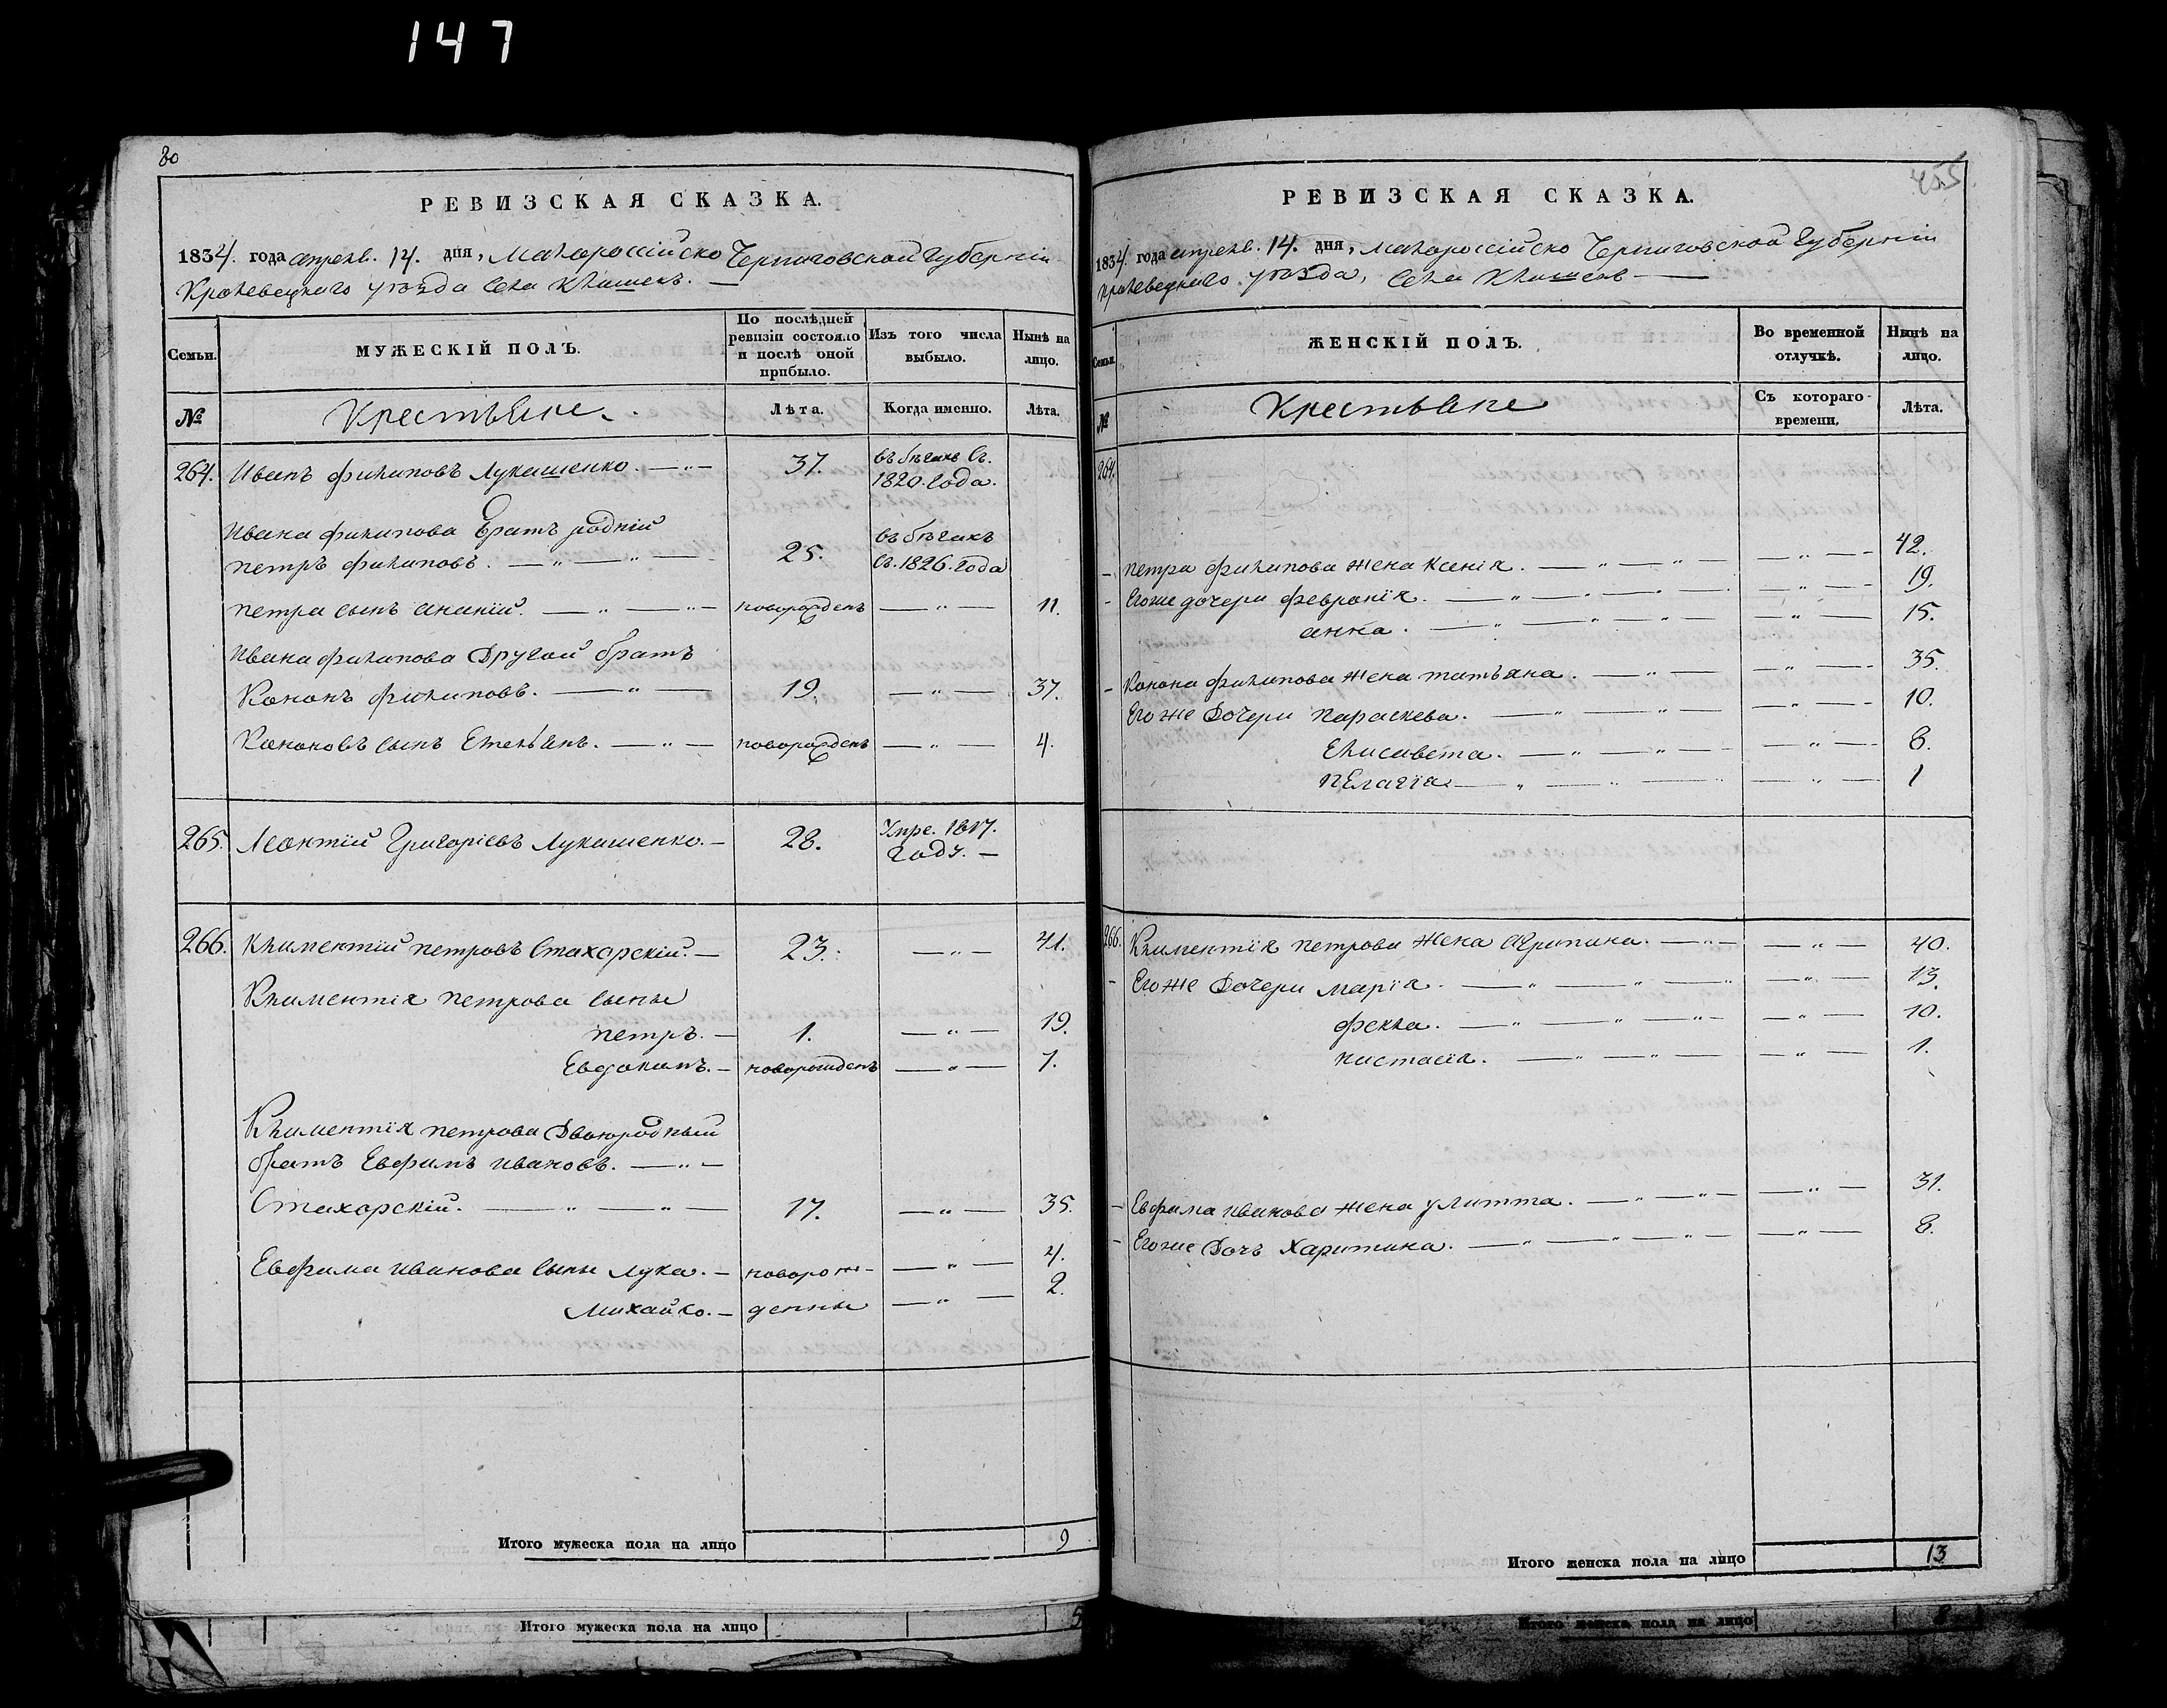 147
80
РЕВИЗСКАЯ СКАЗКА.
1834. года апреля. 14. дня, Малороссійско Черниговской губерніи
Кролевецкаго уѣзда села Клишекъ. —
Семьи.
МУЖЕСКІЙ ПОЛЪ.
По послѣдней ревизіи состояло и послѣ оной прибыло.
Изъ того числа выбыло.
Нынѣ на лицо.
№
Крестьяне.
Лѣта.
Когда именно.
Лѣта.
264. Иванъ филиповъ Лукашенко. — 37. въ бѣгахъ съ. 1820. года.
Ивана филипова братъ родній
петръ филиповъ. — 25. въ бѣгахъ съ. 1826. года
петра сынъ ананій. — новорожденъ — 11.
Ивана филипова другой братъ
Кононъ филиповъ. — 19. — 37.
Кононовъ сынъ Емельянъ. — новорожденъ — 4.
265. Леонтій Григоріевъ Лукашенко. — 28. Умре. 1817. году. —
266. Климентій петровъ Стахорскій. — 23. — 41.
Климентія петрова сыны
петръ. — 1. — 19.
Евдокимъ. — новорожденъ — 1.
Климентія петрова двоюродный
братъ Евфимъ ивановъ. —
Стахорскій. — 17. — 35.
Евфима иванова сыны лука. — новорож- — 4.
Михайло. — денны — 2.
Итого мужеска пола на лицо 9
Итого мужеска пола на лицо 5
455
РЕВИЗСКАЯ СКАЗКА.
1834. года апреля. 14. дня, малороссійско Черниговской губерніи
кролевецкаго уѣзда, села Клишекъ —
Семьи.
ЖЕНСКІЙ ПОЛЪ.
Во временной отлучкѣ.
Нынѣ на лицо.
№
Крестьяне
Съ котораго времени.
Лѣта.
264.
— петра филипова жена Ксенія. — 42.
— Егоже дочери февронія. — 19.
анна. — 15.
— Конона филипова жена татьяна. — 35.
Егоже дочери параскева. — 10.
Елисавета. — 8.
пелагія — 1
266. Климентія петрова жена агрипина. — 40.
— Егоже дочери марія. — 13.
фекла. — 10.
настасія. — 1.
— Евфима иванова жена улитта. — 31.
— Егоже дочь харитина. — 8.
Итого женска пола на лицо 13
Итого женска пола на лицо 8